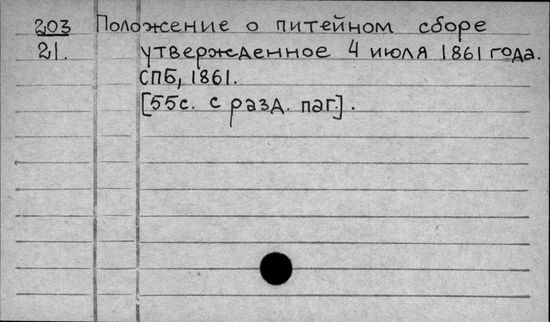 203 Положение о питейном сборе
21. утвержденное 4 июля 1861 года.
СПБ, 1861.
[55с. с разд. паг.].